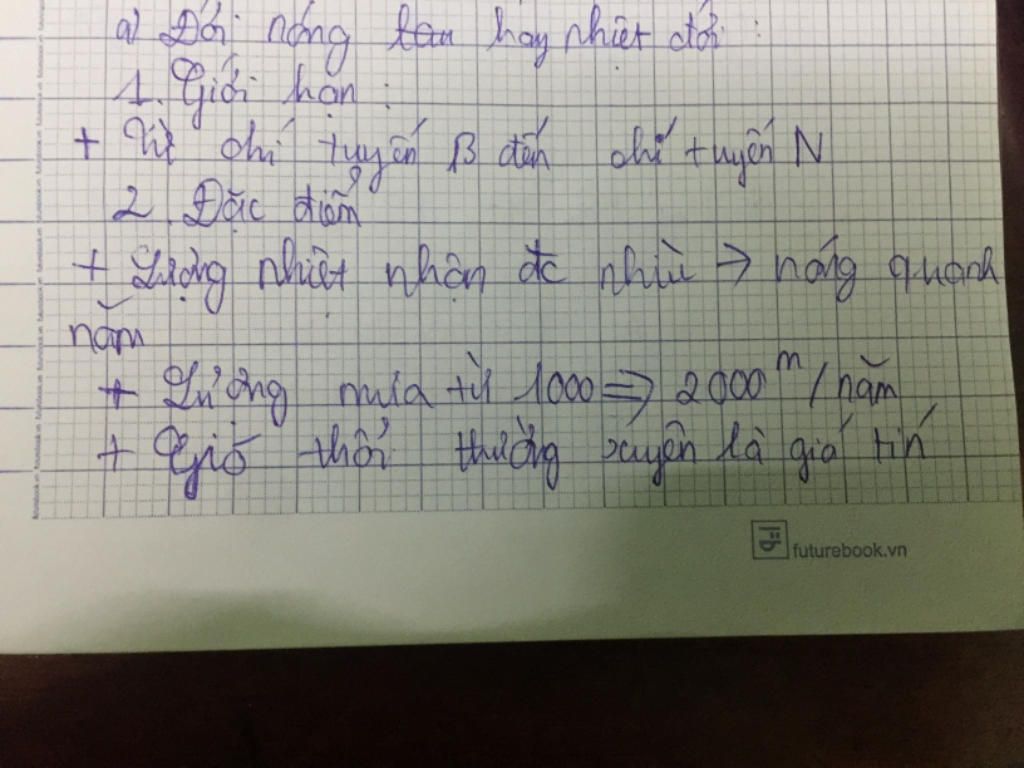 a) Đới nóng hay nhiệt đới :
1. Giới hạn :
+ Từ chí tuyến B đến chí tuyến N
2. Đặc điểm
+ Lượng nhiệt nhận đc nhìu → nóng quanh
năm
+ Lượng mưa từ 1000 => 2000m/năm
+ Gió thổi thường xuyên là gió tín
futurebook.vn